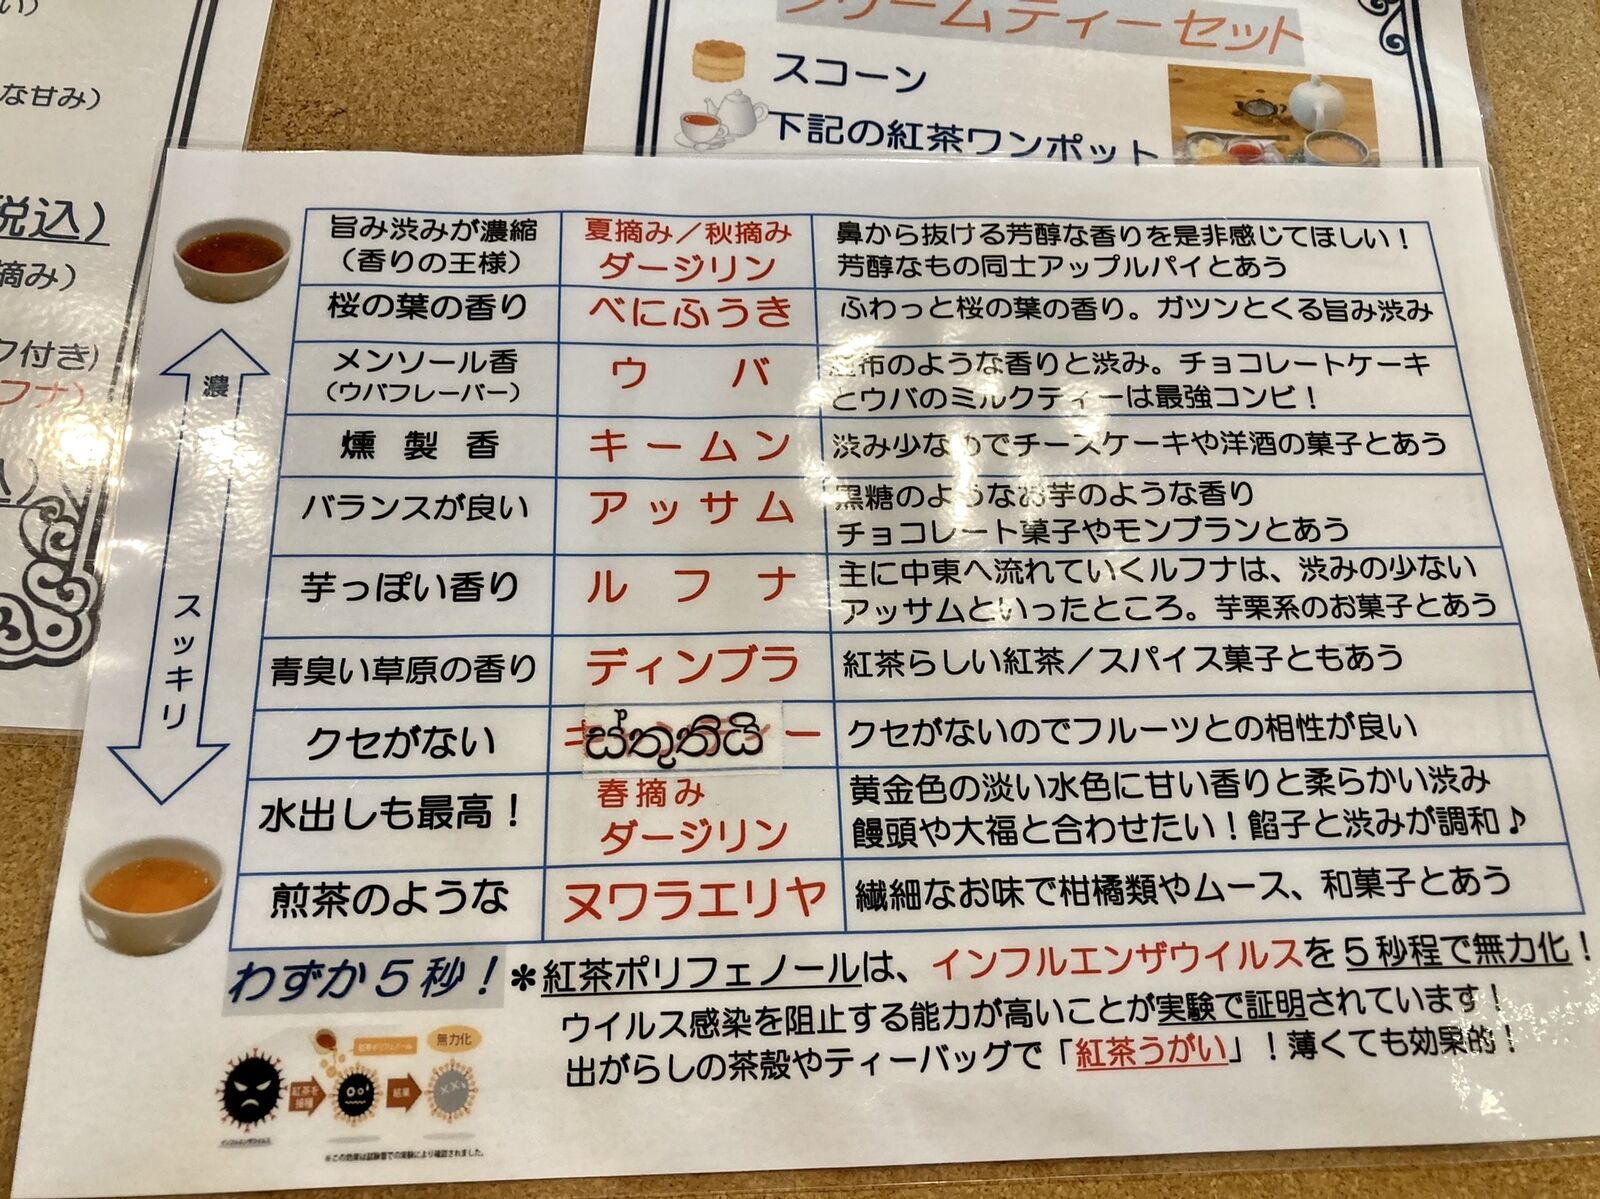 い)
な甘み)
税込)
摘み)
ク付き)
フナ)
クリームティーセット
スコーン
下記の紅茶ワンポット
旨み渋みが濃縮
(香りの王様)
夏摘み／秋摘み
ダージリン
鼻から抜ける芳醇な香りを是非感じてほしい！
芳醇なもの同士アップルパイとあう
桜の葉の香り
べにふうき
ふわっと桜の葉の香り。ガツンとくる旨み渋み
メンソール香
(ウバフレーバー)
ウバ
布のような香りと渋み。チョコレートケーキ
とウバのミルクティーは最強コンビ！
燻製香
キームン
渋み少なめでチーズケーキや洋酒の菓子とあう
バランスが良い
アッサム
黒糖のようなお芋のような香り
チョコレート菓子やモンブランとあう
芋っぽい香り
ルフナ
主に中東へ流れていくルフナは、渋みの少ない
アッサムといったところ。芋栗系のお菓子とあう
青臭い草原の香り
ディンブラ
紅茶らしい紅茶／スパイス菓子ともあう
クセがない
ස්තූතියි
ー
クセがないのでフルーツとの相性が良い
水出しも最高！
春摘み
ダージリン
黄金色の淡い水色に甘い香りと柔らかい渋み
饅頭や大福と合わせたい！餡子と渋みが調和♪
煎茶のような
ヌワラエリヤ
繊細なお味で柑橘類やムース、和菓子とあう
濃
スッキリ
わずか５秒！
＊紅茶ポリフェノールは、インフルエンザウイルスを５秒程で無力化！
ウイルス感染を阻止する能力が高いことが実験で証明されています！
出がらしの茶殻やティーバッグで「紅茶うがい」！薄くても効果的！
紅茶ポリフェノール
無力化
紅茶を
結果
インフルエンザウイルス
※この効果は試験管での実験により確認されました。